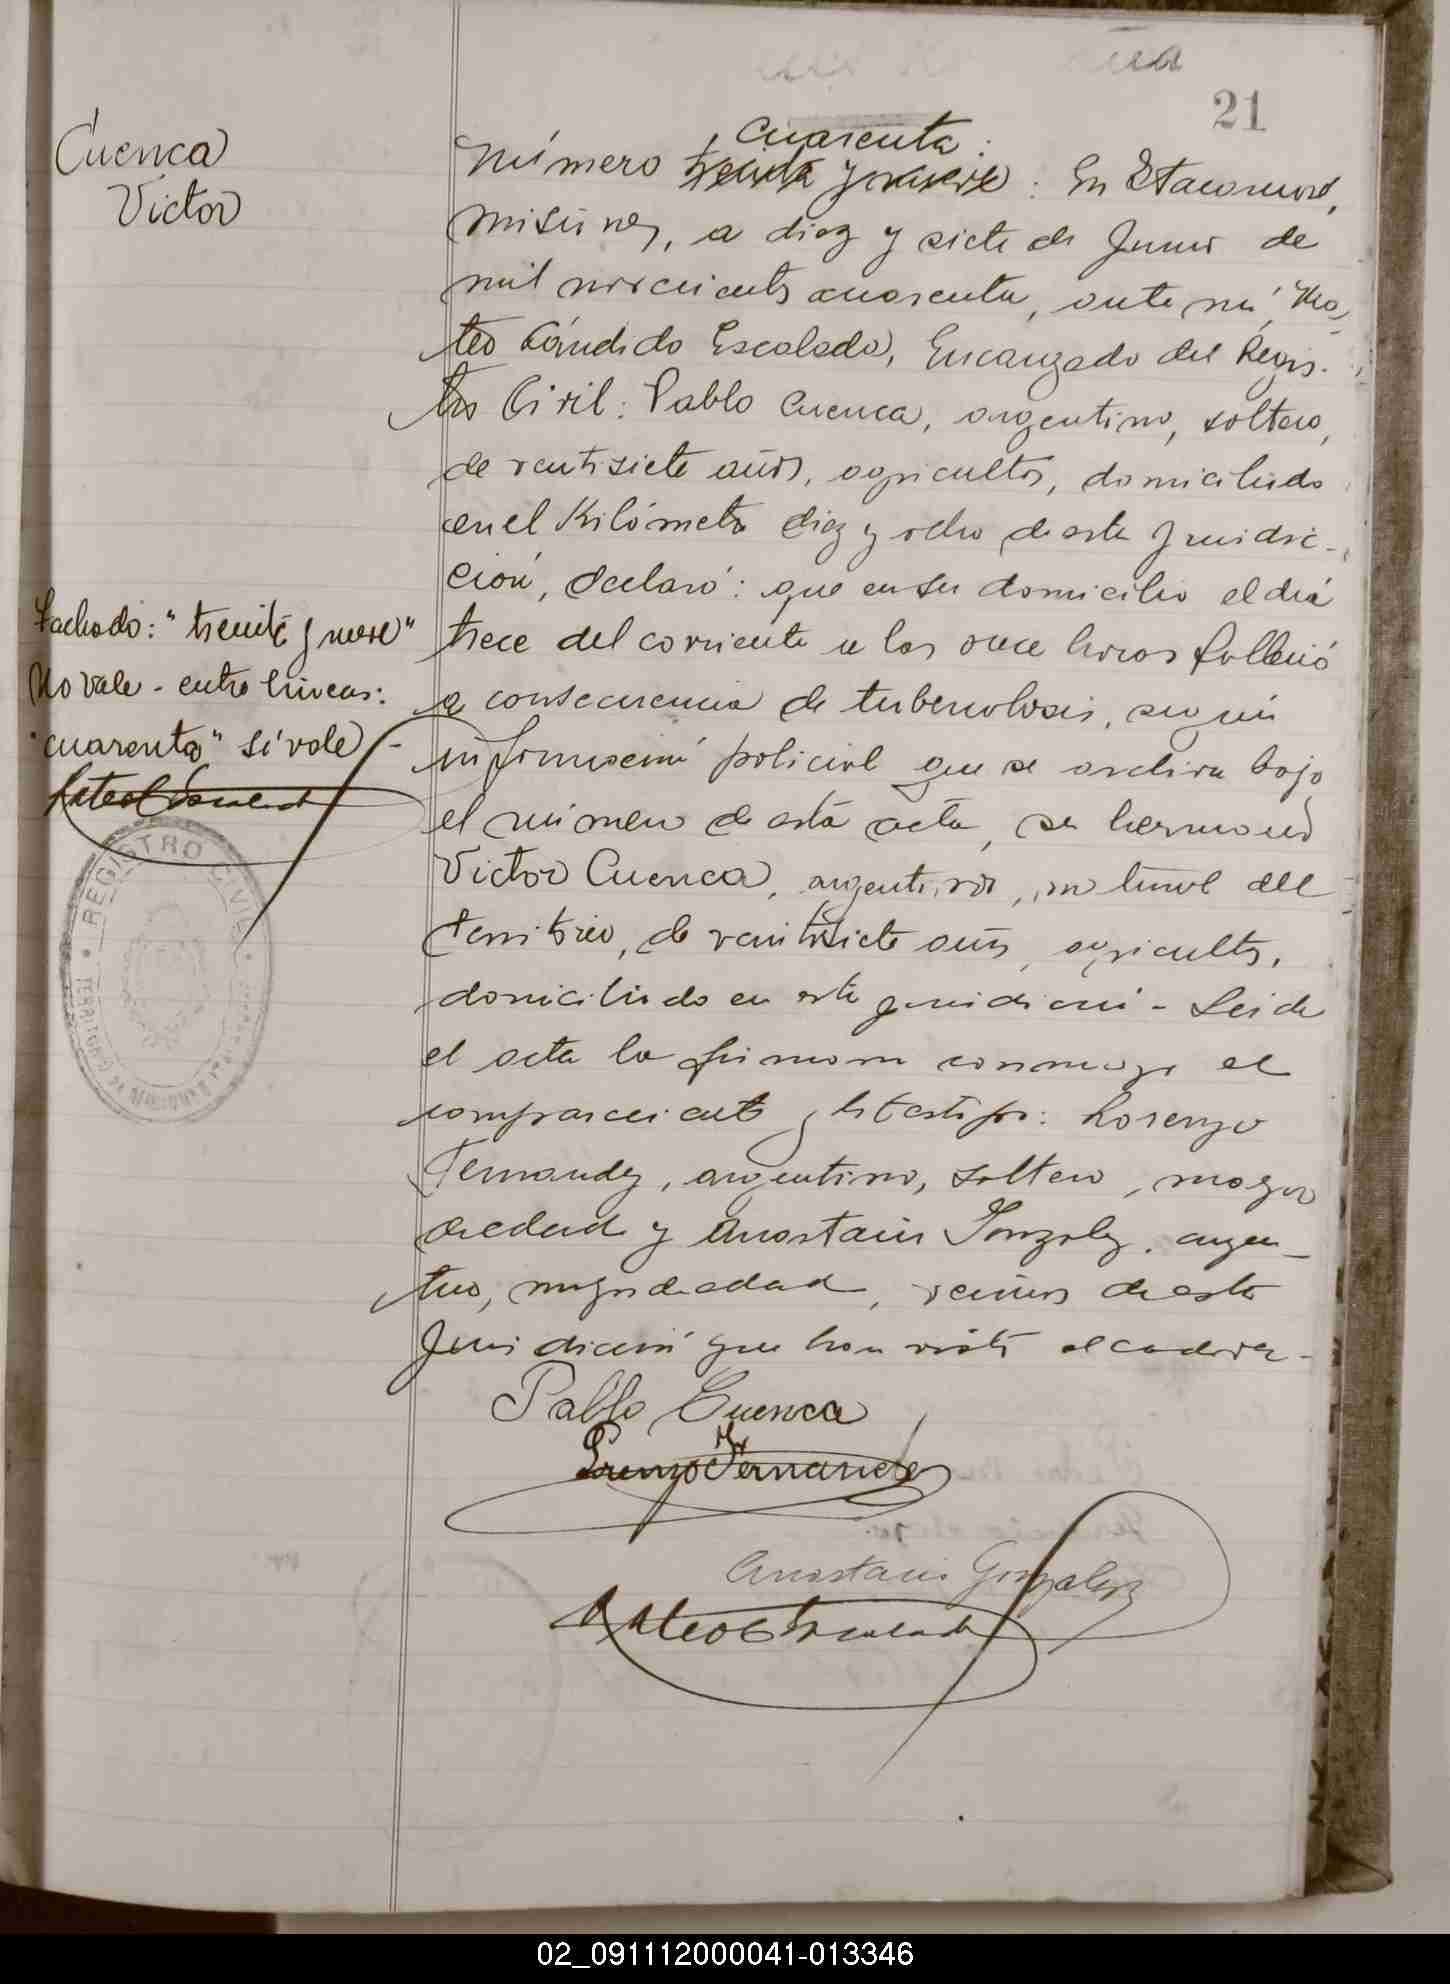 21
Cuenca
Victor
cuarenta:
Número treinta y nueve: En Itacaruaré,
Misiones, a diez y siete de Junio de
mil novecientos cuarenta, ante mí, Ma-
teo Cándido Escalada, Encargado del Regis-
tro Civil: Pablo Cuenca, argentino, soltero,
de ventisiete años, agricultor, domiciliado
en el Kilómetro diez y ocho de esta juridic-
ción, declaró: que en su domicilio el día
trece del corriente a las once horas falleció
a consecuencia de tuberculosis, según
información policial que se archiva bajo
el número de esta acta, su hermano
Victor Cuenca, argentino, natural del
Territorio, de ventisiete años, agricultor,
domiciliado en esta juridición - Leida
el acta la firmaron conmigo el
compareciente y los testigos: Lorenzo
Fernandez, argentino, soltero, mayor
de edad y Anastacio Gonzalez, argen-
tino, mayor de edad, vecinos de esta
Juridición que han visto el cadaver-
Tachado: "treinta y nueve"
No vale - entre lineas:
"cuarenta" sí vale -
Mateo C Escalada
REGISTRO CIVIL
TERRITORIO DE MISIONES
Pablo Cuenca
Lorenzo Fernandez
Anastacio Gonzalez
Mateo C Escalada
02_091112000041-013346